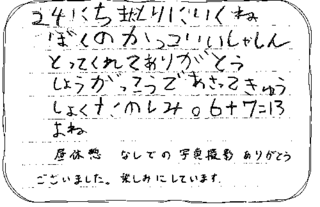 24にちまたいくね
ぼくのかっこいいしゃしん
とってくれてありがとう
しょうがっこうであさってきゅう
しょくたのしみ。6+7=13
よね
昼休憩 なしでの 写真撮影 ありがとう
ございました。楽しみにしています。